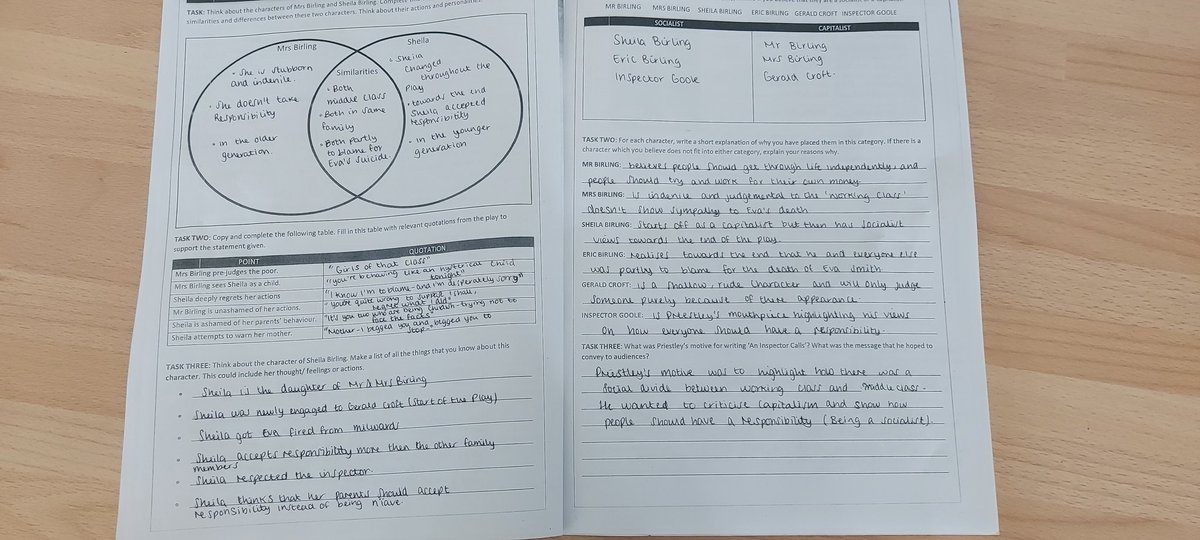 TASK: Think about the characters of Mrs Birling and Sheila Birling. Complete
similarities and differences between these two characters. Think about their actions and personalities.
Mrs Birling
Sheila
• She is stubborn
and indenile.
• She doesn't take
Responsibility
• in the older
generation.
Similarities
• Both
middle class
• Both in same
family
• Both partly
to blame for
Eva's suicide.
• Sheila
changed
throughout the
play
• towards the end
Sheila accepted
responsibility
• in the younger
generation
TASK TWO: Copy and complete the following table. Fill in this table with relevant quotations from the play to
support the statement given.
POINT
QUOTATION
Mrs Birling pre-judges the poor.
"Girls of that class"
Mrs Birling sees Sheila as a child.
"you're behaving like an hysterical child
tonight"
Sheila deeply regrets her actions
"I know I'm to blame - and I'm desperately sorry"
Mr Birling is unashamed of his actions.
"you're quite wrong to suppose I shall
regret what I did"
Sheila is ashamed of her parents' behaviour.
"It's you two who are being childish - trying not to
face the facts"
Sheila attempts to warn her mother.
"Mother - I begged you and begged you to
stop"
TASK THREE: Think about the character of Sheila Birling. Make a list of all the things that you know about this
character. This could include her thought/ feelings or actions.
• Sheila is the daughter of Mr & Mrs Birling
• Sheila was newly engaged to Gerald Croft (Start of the Play)
• Sheila got Eva fired from milwards
• Sheila accepts responsibility more then the other family
members
• Sheila respected the inspector.
• Sheila thinks that her parents should accept
responsibility instead of being niave.
MR BIRLING MRS BIRLING SHEILA BIRLING ERIC BIRLING GERALD CROFT INSPECTOR GOOLE
SOCIALIST
CAPITALIST
Sheila Birling
Eric Birling
Inspector Goole
Mr Birling
Mrs Birling
Gerald Croft.
TASK TWO: For each character, write a short explanation of why you have placed them in this category. If there is a
character which you believe does not fit into either category, explain your reasons why.
MR BIRLING: believes people should get through life independently, and
people should try and work for their own money
MRS BIRLING: is indenile and judgemental to the 'working class'
doesn't show sympathy to Eva's death
SHEILA BIRLING: Starts off as a capitalist but then has socialist
views towards the end of the play.
ERIC BIRLING: Realises towards the end that he and everyone else
was partly to blame for the death of Eva Smith
GERALD CROFT: is a shallow, rude character and will only judge
someone purely because of there appearance.
INSPECTOR GOOLE: is Priestley's mouthpiece highlighting his views
on how everyone should have a responsibility.
TASK THREE: What was Priestley's motive for writing 'An Inspector Calls'? What was the message that he hoped to
convey to audiences?
Priestley's motive was to highlight how there was a
social divide between working class and middle class.
He wanted to criticise capitalism and show how
people should have a responsibility (Being a socialist).